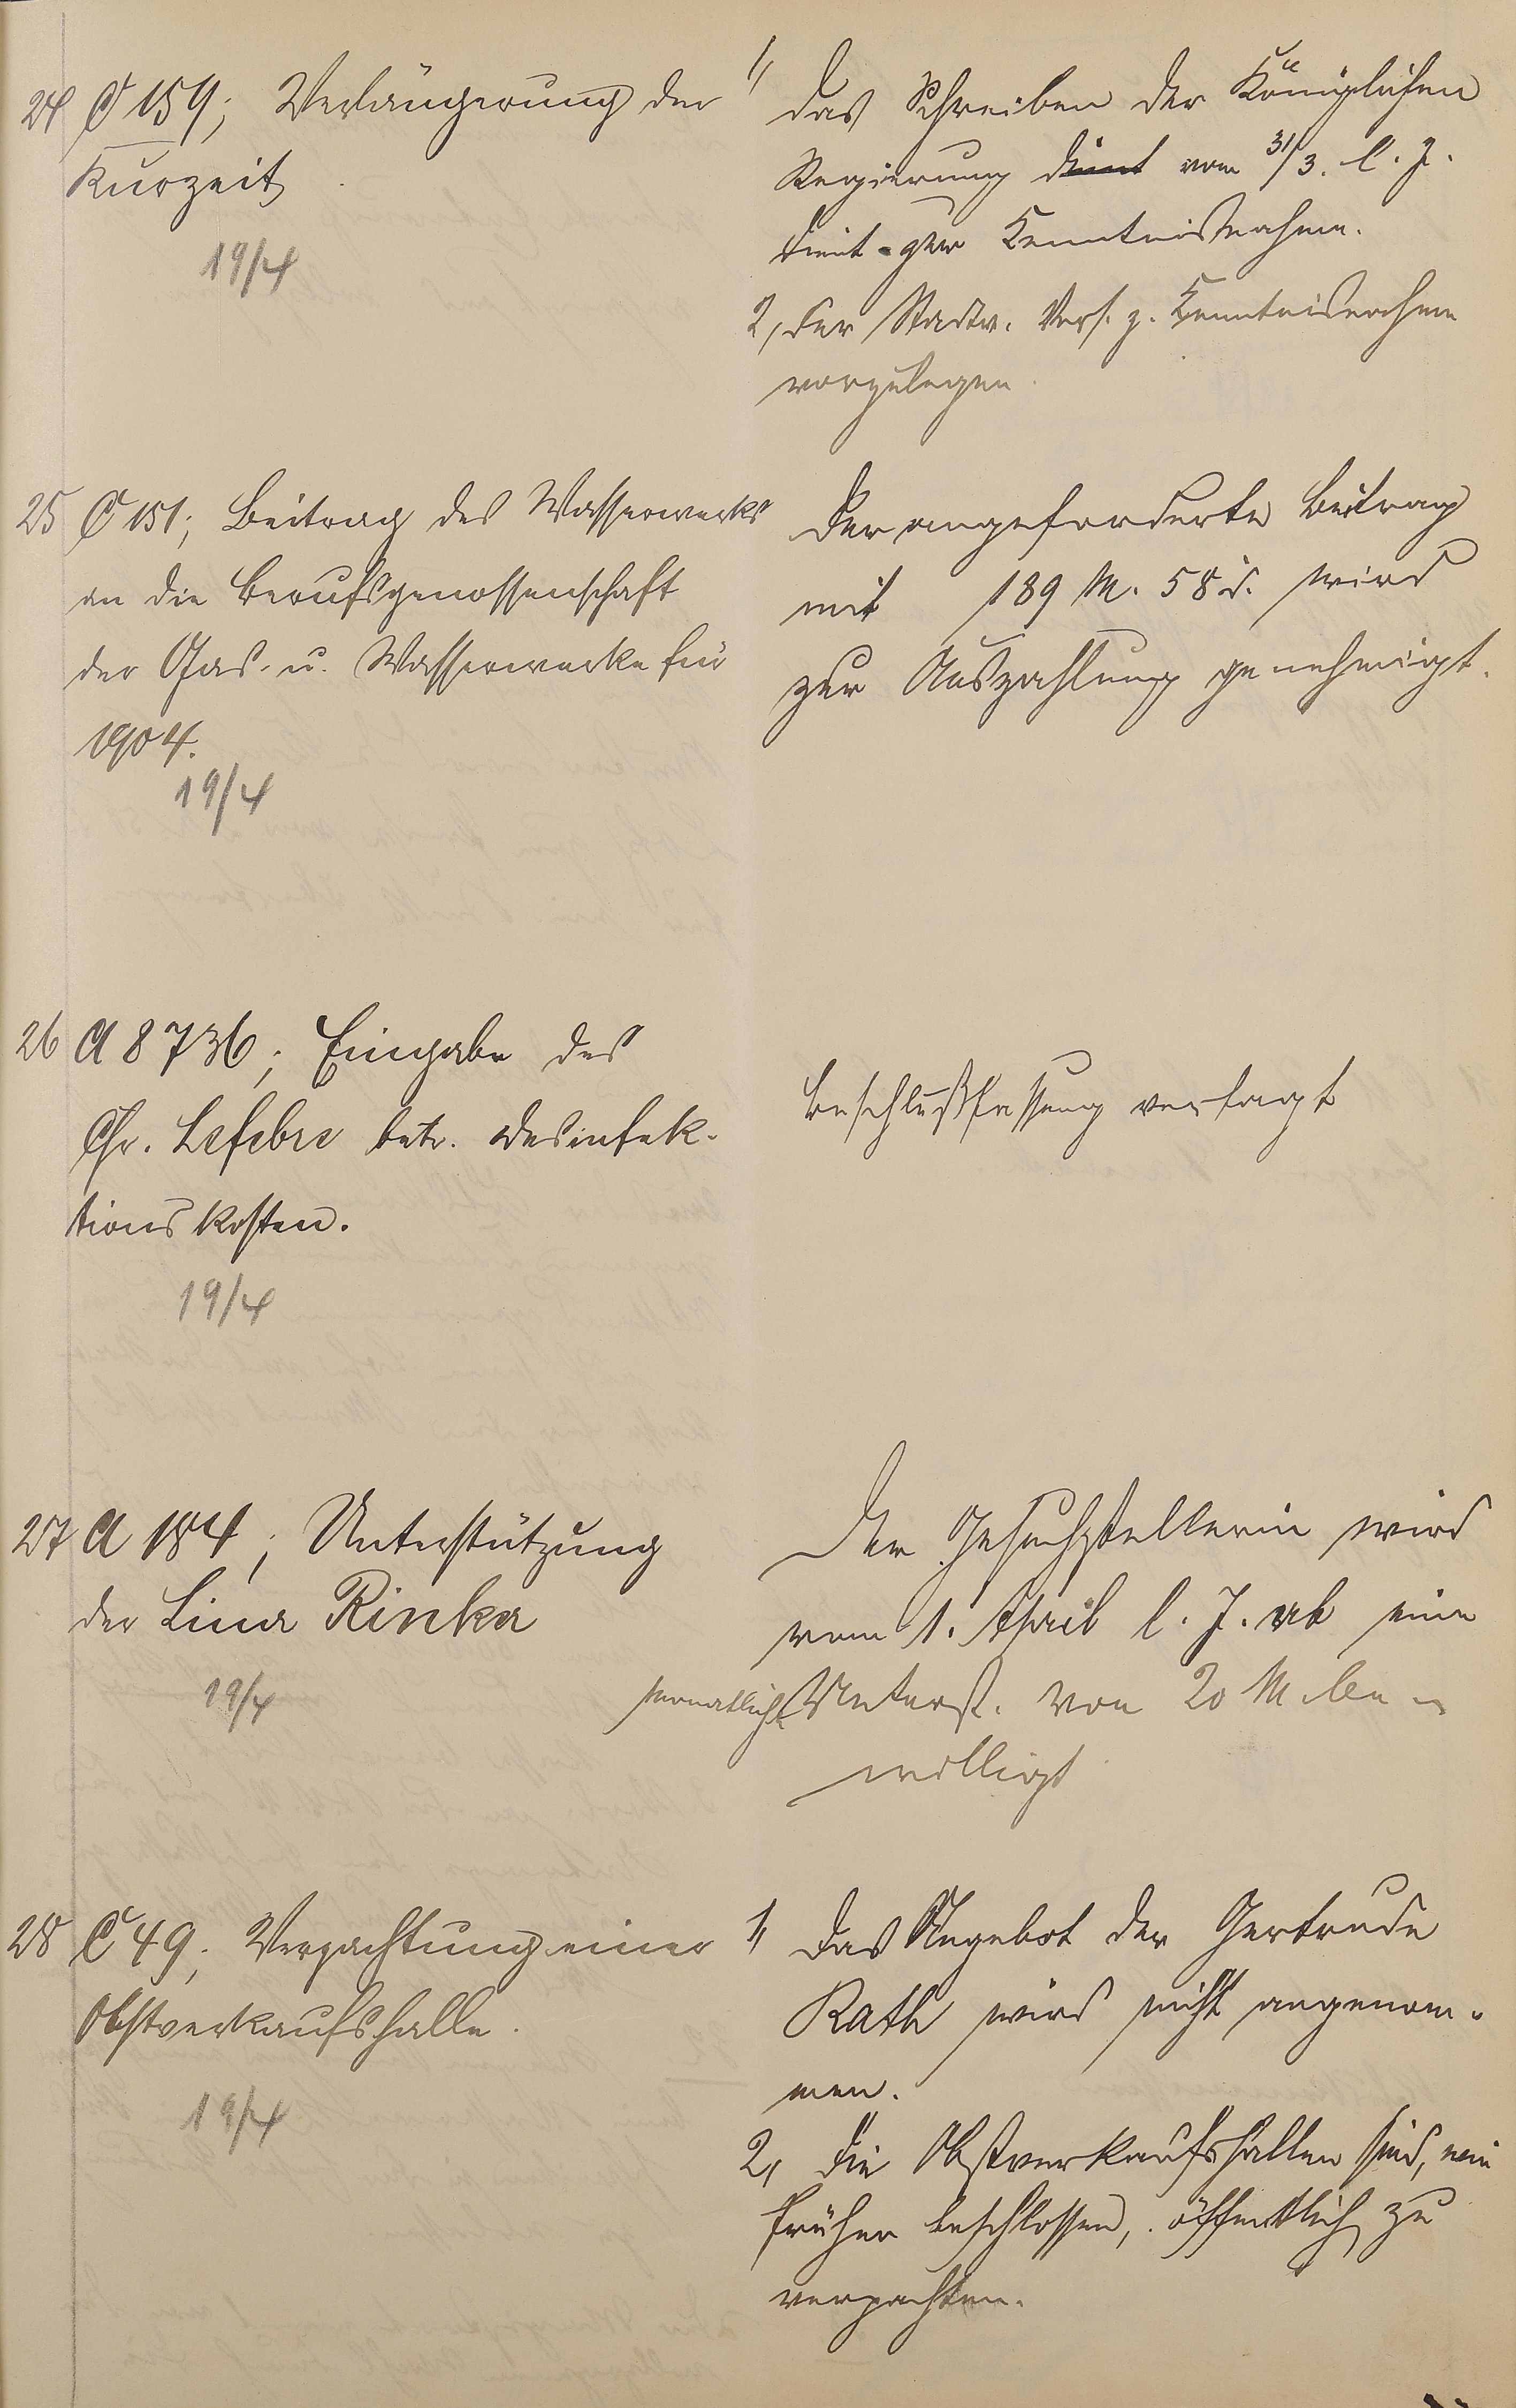 24 C 159; Verlängerung der
Kurzeit
19/4
1, Das Schreiben der Königlichen
Regierung dient vom 31/3. l. J.
dient zur Kenntnisnahme.
2, Der Stadtv. Vers. z. Kenntnisnahme
vorzulegen
25 C 151; Beitrag des Wasserwerks
an die Berufsgenossenschaft
der Gas- u. Wasserwerke für
1904.
19/4
Der angeforderte Beitrag
mit 189 M. 58 d. wird
zur Auszahlung genehmigt.
26 A 8736; Eingabe des
Chr. Lefebre betr. Desinfek-
tionskosten.
19/4
Beschlußfassung versagt
27 A 184; Unterstützung
der Lina Rinka
19/4
Der Gesuchstellerin wird
vom 1. April l. J. ab eine
monatliche Unterst. von 20 M. be-
willigt
28 C 49; Verpachtung einer
Obstverkaufshalle.
19/4
1, Das Angebot der Gertrude
Rath wird nicht angenom-
men.
2, Die Obstverkaufshallen sind, wie
früher beschlossen, öffentlich zu
verpachten.